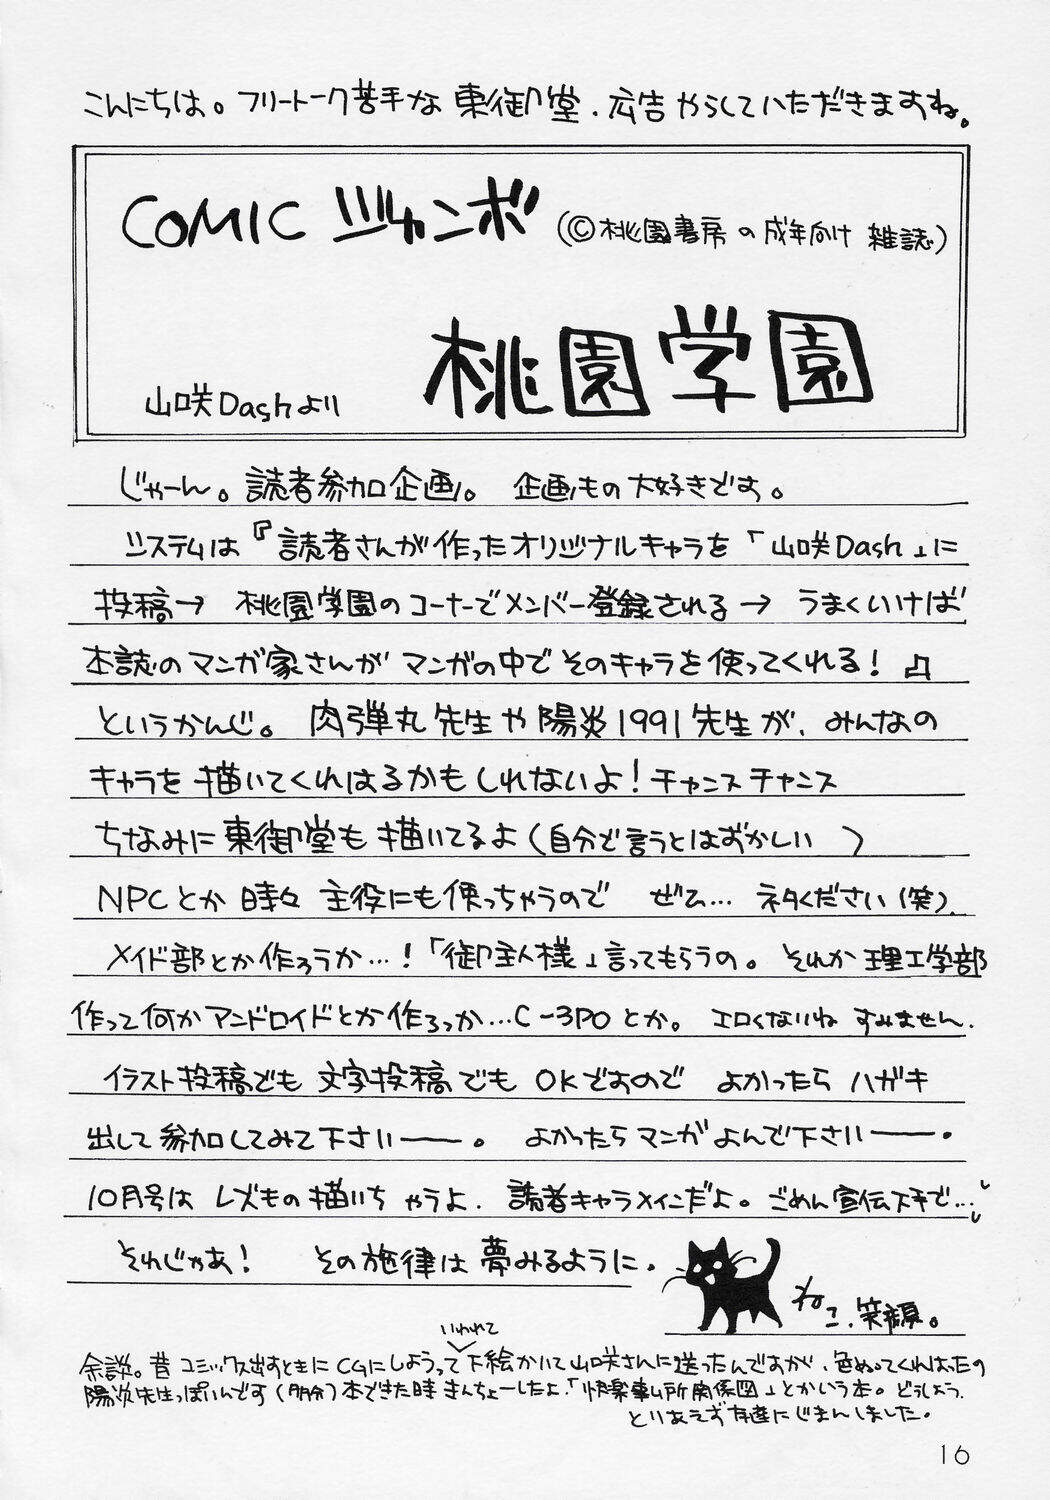 こんにちは。フリートーク苦手な 東御堂、広告やらしていただきますね。
COMIC ジャンボ (©桃園書房の成年向け 雑誌)
桃園学園
山咲Dashより
じゃーん。読者参加企画。 企画もの大好きです。
システムは『読者さんが作ったオリジナルキャラを「山咲Dash」に
投稿→ 桃園学園のコーナーでメンバー登録される→ うまくいけば
本誌のマンガ家さんが マンガの中でそのキャラを使ってくれる! 』
というかんじ。 肉弾丸先生や陽炎1991先生が、みんなの
キャラを描いてくれはるかもしれないよ!チャンスチャンス
ちなみに東御堂も描いてるよ(自分で言うとはずかしい )
NPCとか時々主役にも使っちゃうので ぜひ… ネタください(笑)
メイド部とか作ろうか…!「御主人様」言ってもらうの。それか理工学部
作って何かアンドロイドとか作ろっか…C-3POとか。エロくないね すみません.
イラスト投稿でも 文字投稿でも OKですので よかったら ハガキ
出して参加してみて下さいーー。 よかったらマンガよんで下さいーー.
10月号は レズもの描いちゃうよ. 読者キャラメインだよ。ごめん宣伝下手で…
それじゃあ! その旋律は夢みるように.
ねこ.笑顔。
いわれて
余談。昔 コミックス出すときに CGにしようって下絵かいて山咲さんに送ったんですが、色ぬってくれはったの
陽炎先生っぽいんです(多分)本できた時きんちょーしたよ.「快楽事ム所関係図」とかいう本。どうしよう.
とりあえず友達にじまんしました。
16